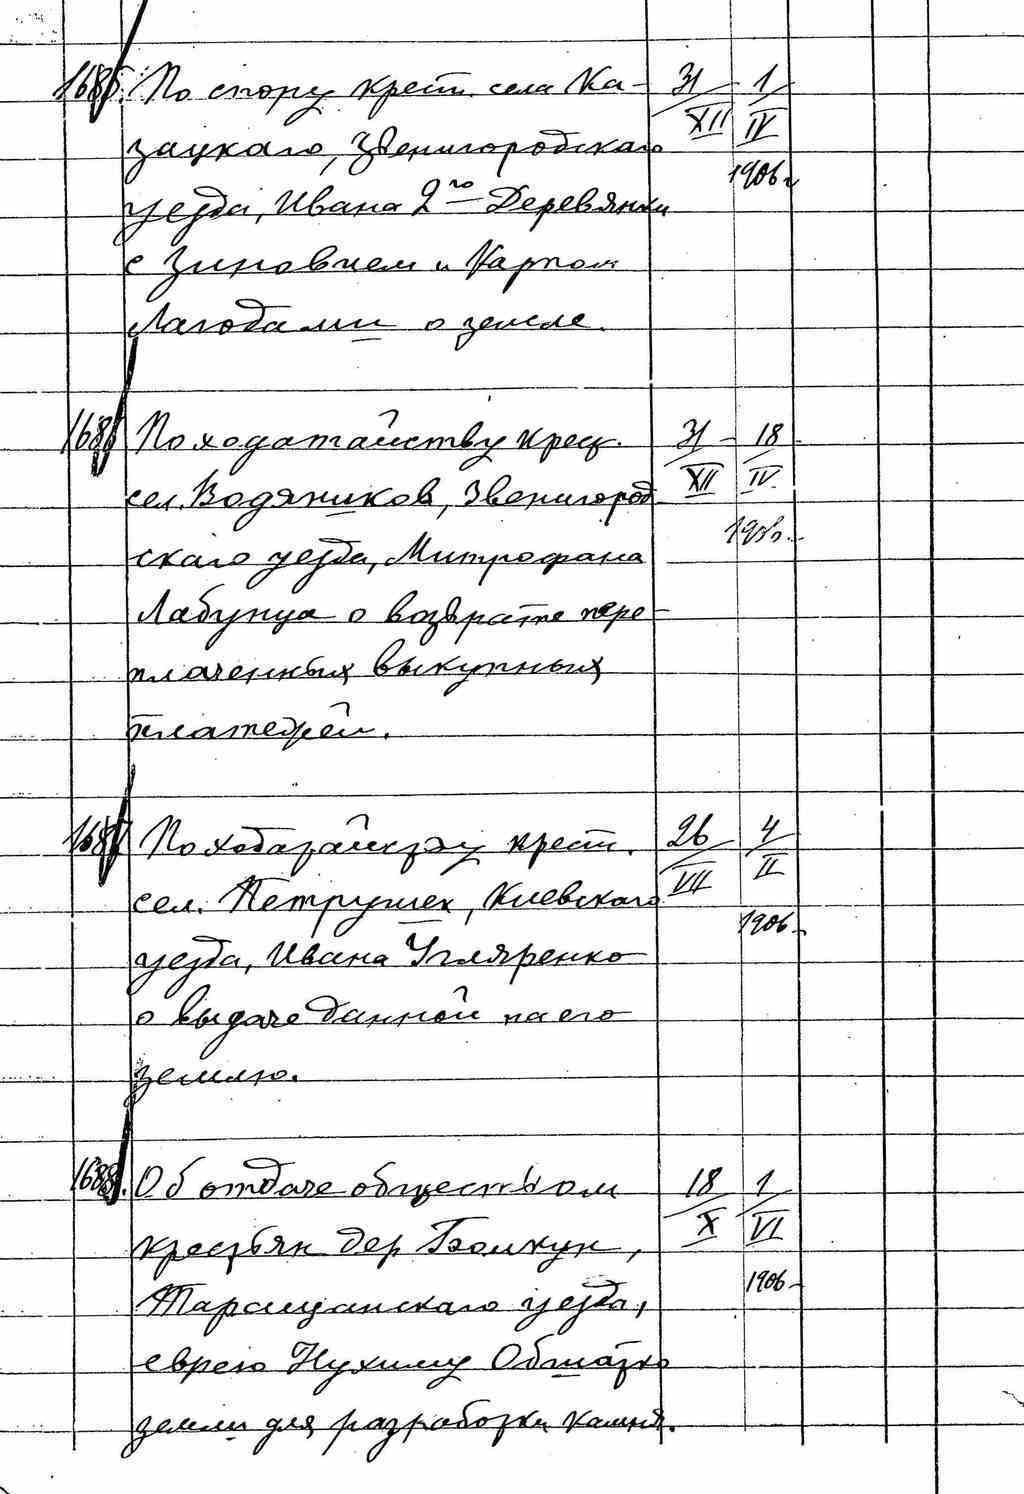 1685. По спору крест. села Ка- 31/XII 1/IV
зацкаго, Звенигородскаго 1906 г.
уезда, Ивана 2го Деревянки
с Зиновием и Карпом
Лагодами о земле.
1686 По ходатайству крест. 31/XII 18/IV
сел. Водяников, Звенигород- 1906.
скаго уезда, Митрофана
Лабунца о возврате пере-
плаченных выкупных
платежей.
1687 По ходатайству крест. 26/VII 4/II
сел. Петрушек, Киевскаго 1906
уезда, Ивана Угляренко
о выдаче данной на его
землю.
1688. Об отдаче обществом 18/X 1/VI
крестьян дер. Бошкун, 1906
Таращанскаго уезда,
еврею Нухиму
земли для разработки камня.